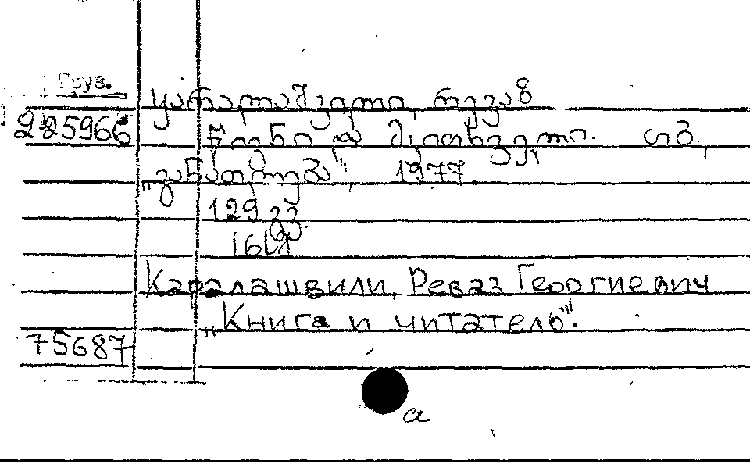 Груз.
ყარალაშვილი, რევაზ
285966 წიგნი და მკითხველი. თბ.
"განათლება", 1977.
129 გვ.
16სმ
Каралашвили, Реваз Георгиевич
"Книга и читатель".
75687
а